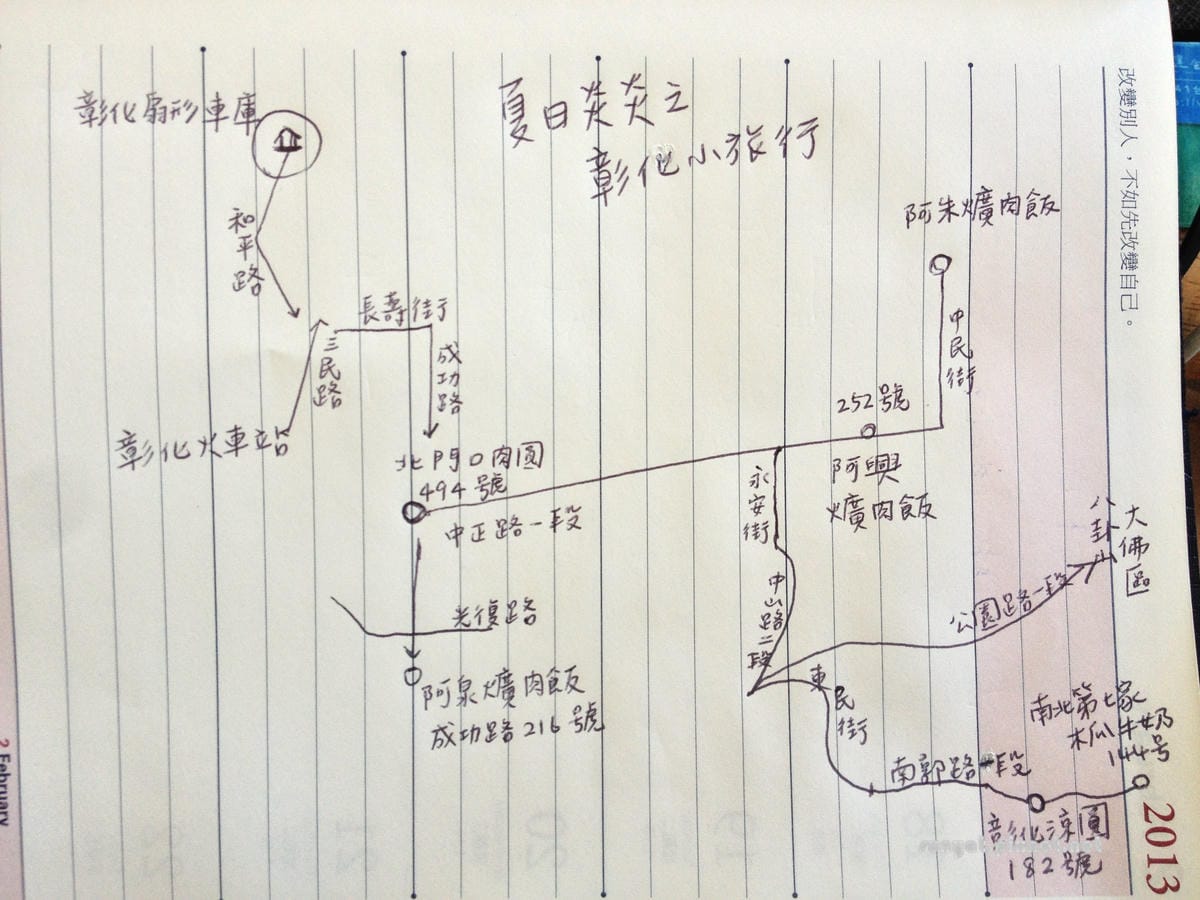 夏日炎炎之
彰化小旅行
彰化扇形車庫
和平路
長壽街
三民路
成功路
彰化火車站
北門口肉圓
494號
中正路一段
光復路
阿泉爌肉飯
成功路216號
阿朱爌肉飯
中民街
252號
阿興
爌肉飯
永安街
中山路二段
公園路一段
八卦山
大佛區
東民街
南郭路一段
南北第七家
木瓜牛奶
144号
彰化涼圓
182號
改變別人,不如先改變自己。
2013
2 February